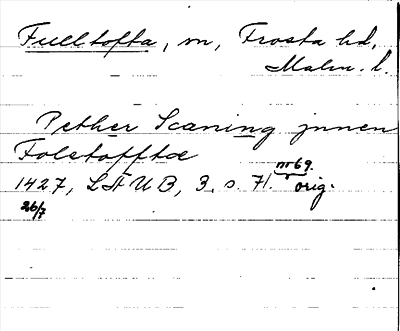 Fulltofta, sn, Frosta hd,
Malm. l.
Pether Scaning jnnen
Folstofftæ
nr 69.
1427, LÄUB, 3. s. 71. orig.
26/7